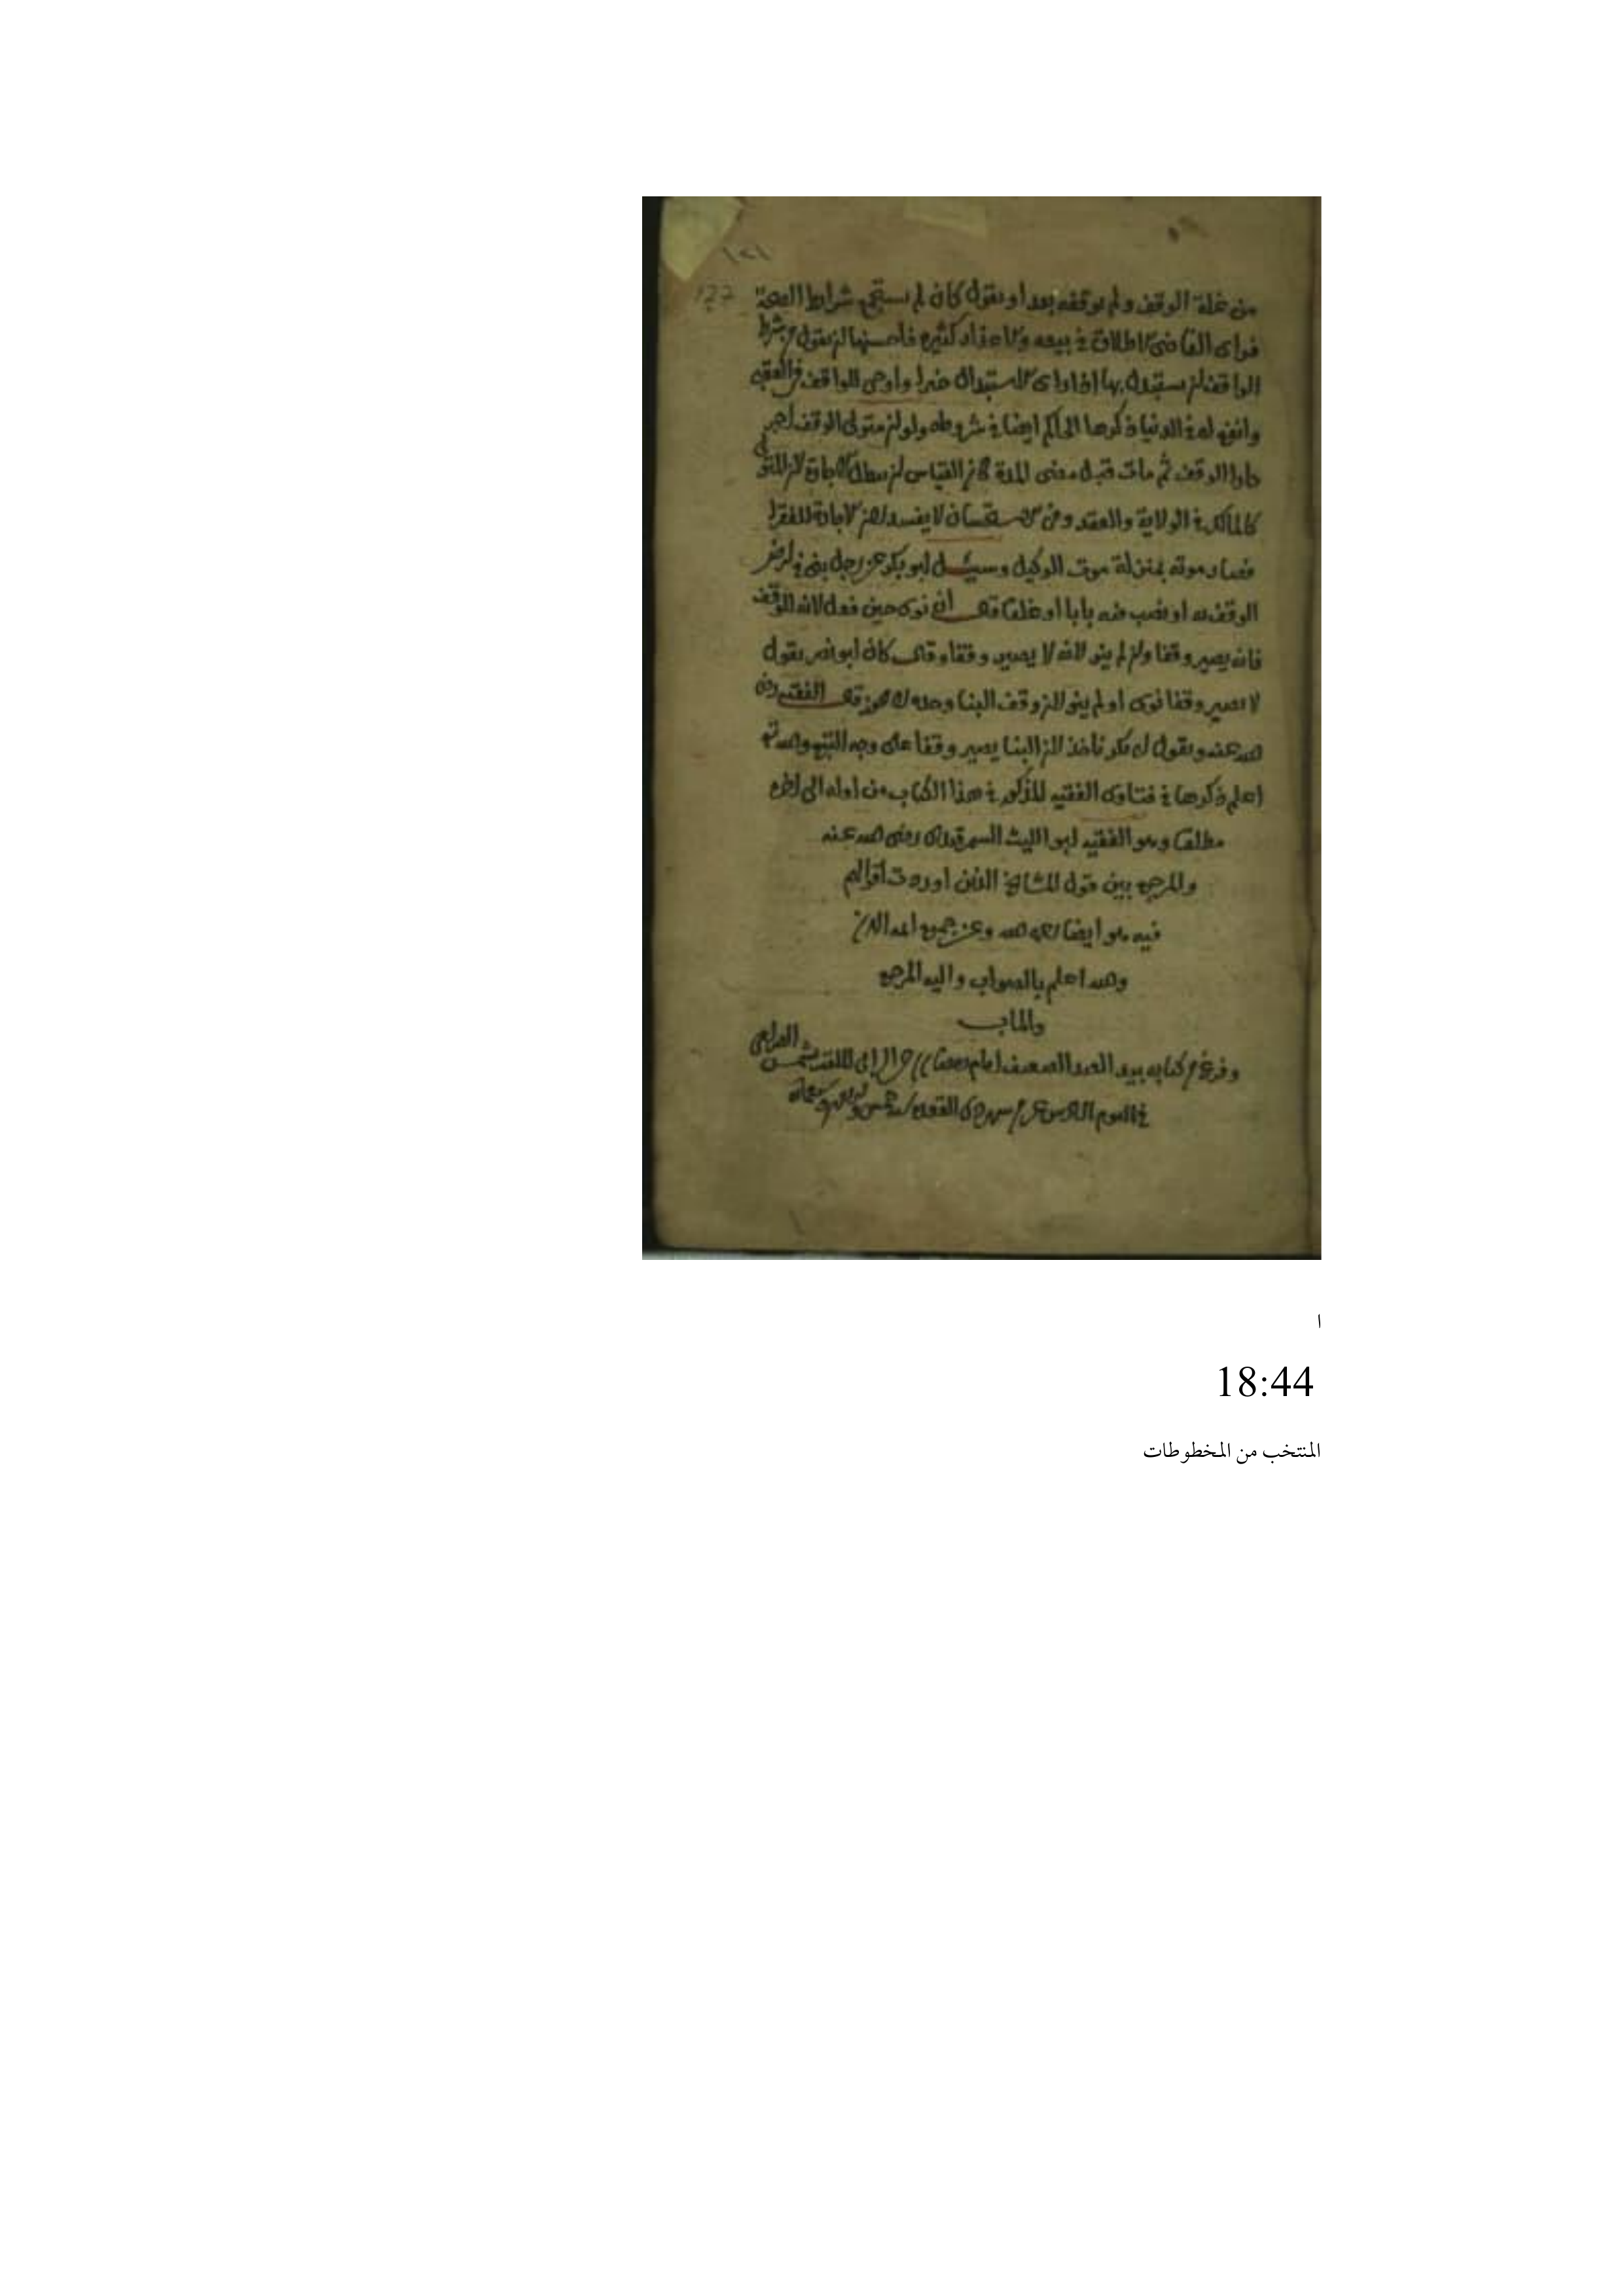 ١٢١
من غلة الوقف ولم يوقفه بعد او يقول كان لم يستجمع شرايط الصحة
فراى القاضى الاطلاق في بيعه والاعذار كثيرة فاحسنها ان يقول بشرط
الواقف ان يستبدل بها اذا راى الاستبدال خيرا واوحى للواقف في العقبى
وانفع له في الدنيا ذكرها الحاكم ايضا في شروطه ولو ان متولى الوقف اجر
دار الوقف ثم مات قبل مضى المدة كان القياس ان يبطل الاجارة لان المتولى
كالمالك في الولاية والعقد وفى الاستحسان لا يفسد لان الاجارة للفقرا
فصار موته بمنزلة موت الوكيل وسئل ابو بكر عن رجل بنى في ارض
الوقف او نصب فيه بابا او غلقا قال ان نوى حين فعل لانه للوقف
فانه يصير وقفا وان لم ينو لانه لا يصير وقفا وقال كان ابو نصر يقول
لا يصير وقفا نوى او لم ينو لان وقف البنا وحده لا يجوز قال الفقيه رضى
الله عنه وبقول ابى بكر ناخذ لان البنا يصير وقفا على وجه التبع والله تعالى
اعلم ذكرها في فتاوى الفقيه المذكور في هذا الكتاب من اوله الى اخره
مطلقا وهو الفقيه ابو الليث السمرقندى رضى الله عنه
والمرجح بين قول المشايخ الذين اوردت اقوالهم
فيه هو ايضا رحمه الله وعن جميع ائمة الدين
والله اعلم بالصواب واليه المرجع
والماب
وفرغ من كتابه بيد العبد الضعيف امام
في اليوم
ا
18:44
المنتخب من المخطوطات